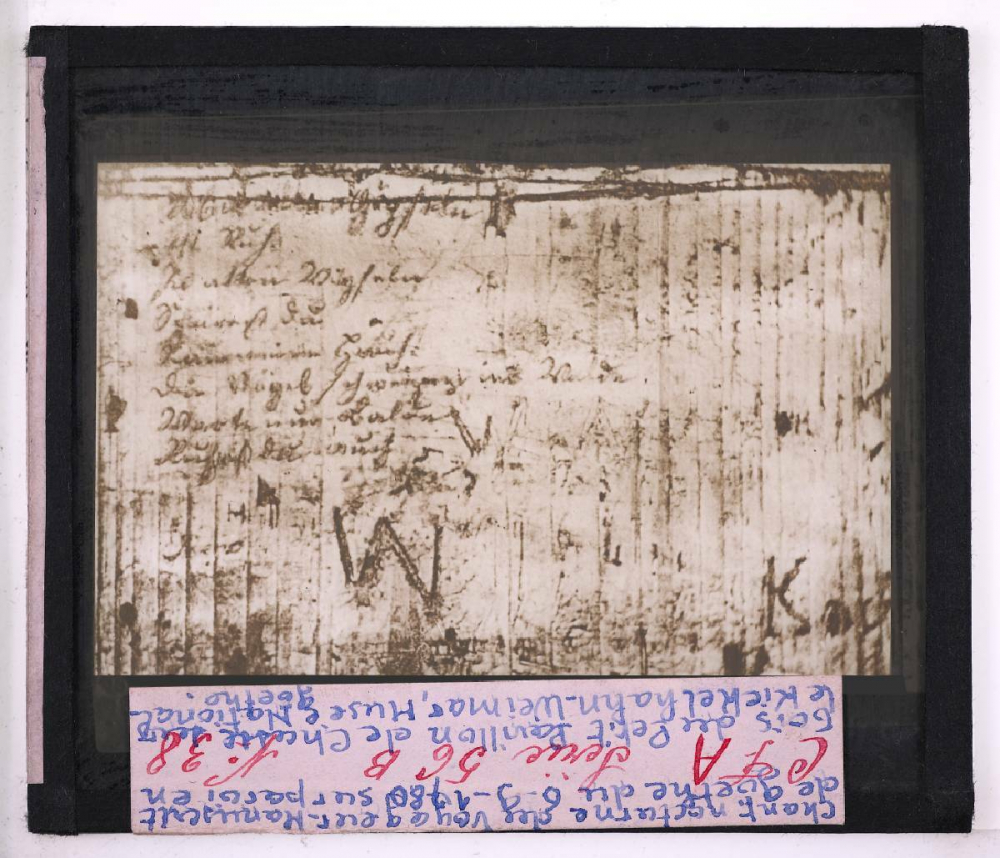 Gipfeln
ist Ruh
In allen Wipfeln
Spürest du
Kaum einen Hauch:
Die Vögel schweigen im Walde
Warte nur, balde
Ruhest du auch
W
K
Chant nocturne du Voyageur-Manuscrit
de Goethe du 6-9-1780 sur paroi en
CFA Série 56 B N° 38
bois du Petit Pavillon de Chasse
le Kickelhahn-Weimar, Musée National-
Goethe.